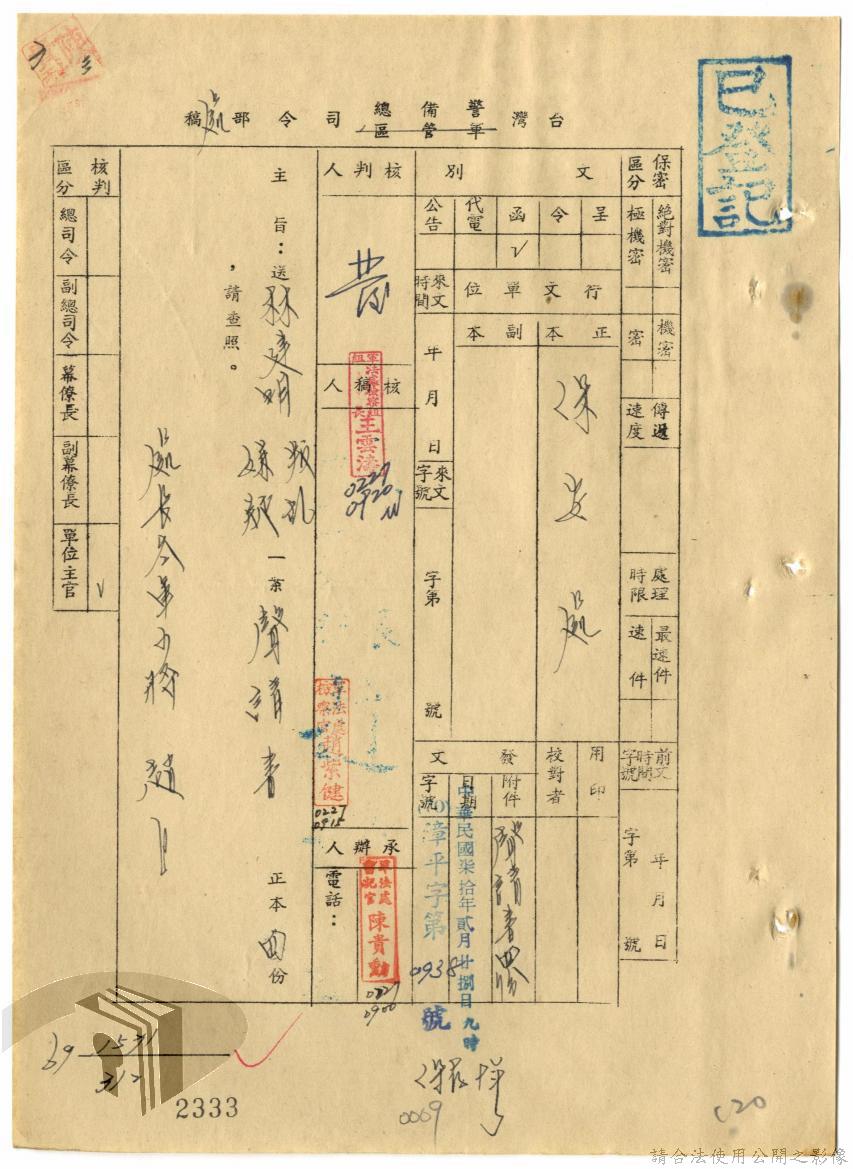 已登記
台灣警備總司令部處稿
軍管區
保密區分
絕對機密
極機密
機密
密
傳遞速度
處理時限
最速件
速件
前文時間字號
年月日
字第 號
文別
呈
令
函
代電
公告
V
行文單位
正本
副本
保安處
來文時間
年月日
來文字號
字第 號
用印
校對者
發文
附件
日期
字號
聲請書四份
中華民國柒拾年貳月廿捌日九時
漳平字第0938號
核判人
核稿人
軍法處檢察組組長 王雲濤
0227
0920
軍法處檢察官 趙紫健
0227
0915
承辦人
軍法處書記官 陳貴勳
0227
0900
電話：
主旨：送林建明 一案聲請書正本 份
，請查照。
處長
核判區分
總司令
副總司令
幕僚長
副幕僚長
單位主官
V
69
1531
312
2333
0069
請合法使用公開之影像